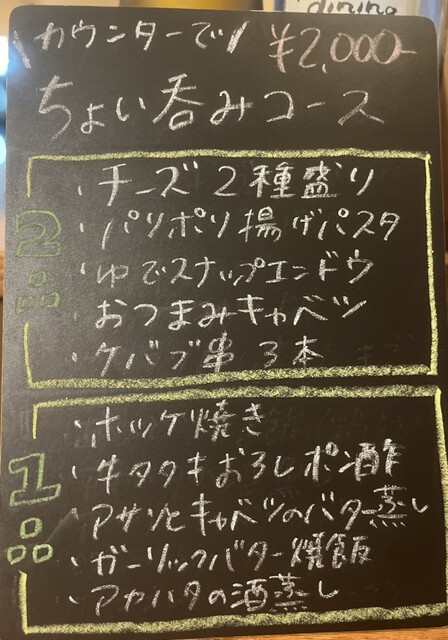 dining
カウンターで ¥2,000-
ちょい呑みコース
2品
・チーズ2種盛り
・パリポリ揚げパスタ
・ゆでスナップエンドウ
・おつまみキャベツ
・ケバブ串3本
1品
・ホッケ焼き
・牛タタキおろしポン酢
・アサリとキャベツのバター蒸し
・ガーリックバター焼飯
・アカハタの酒蒸し